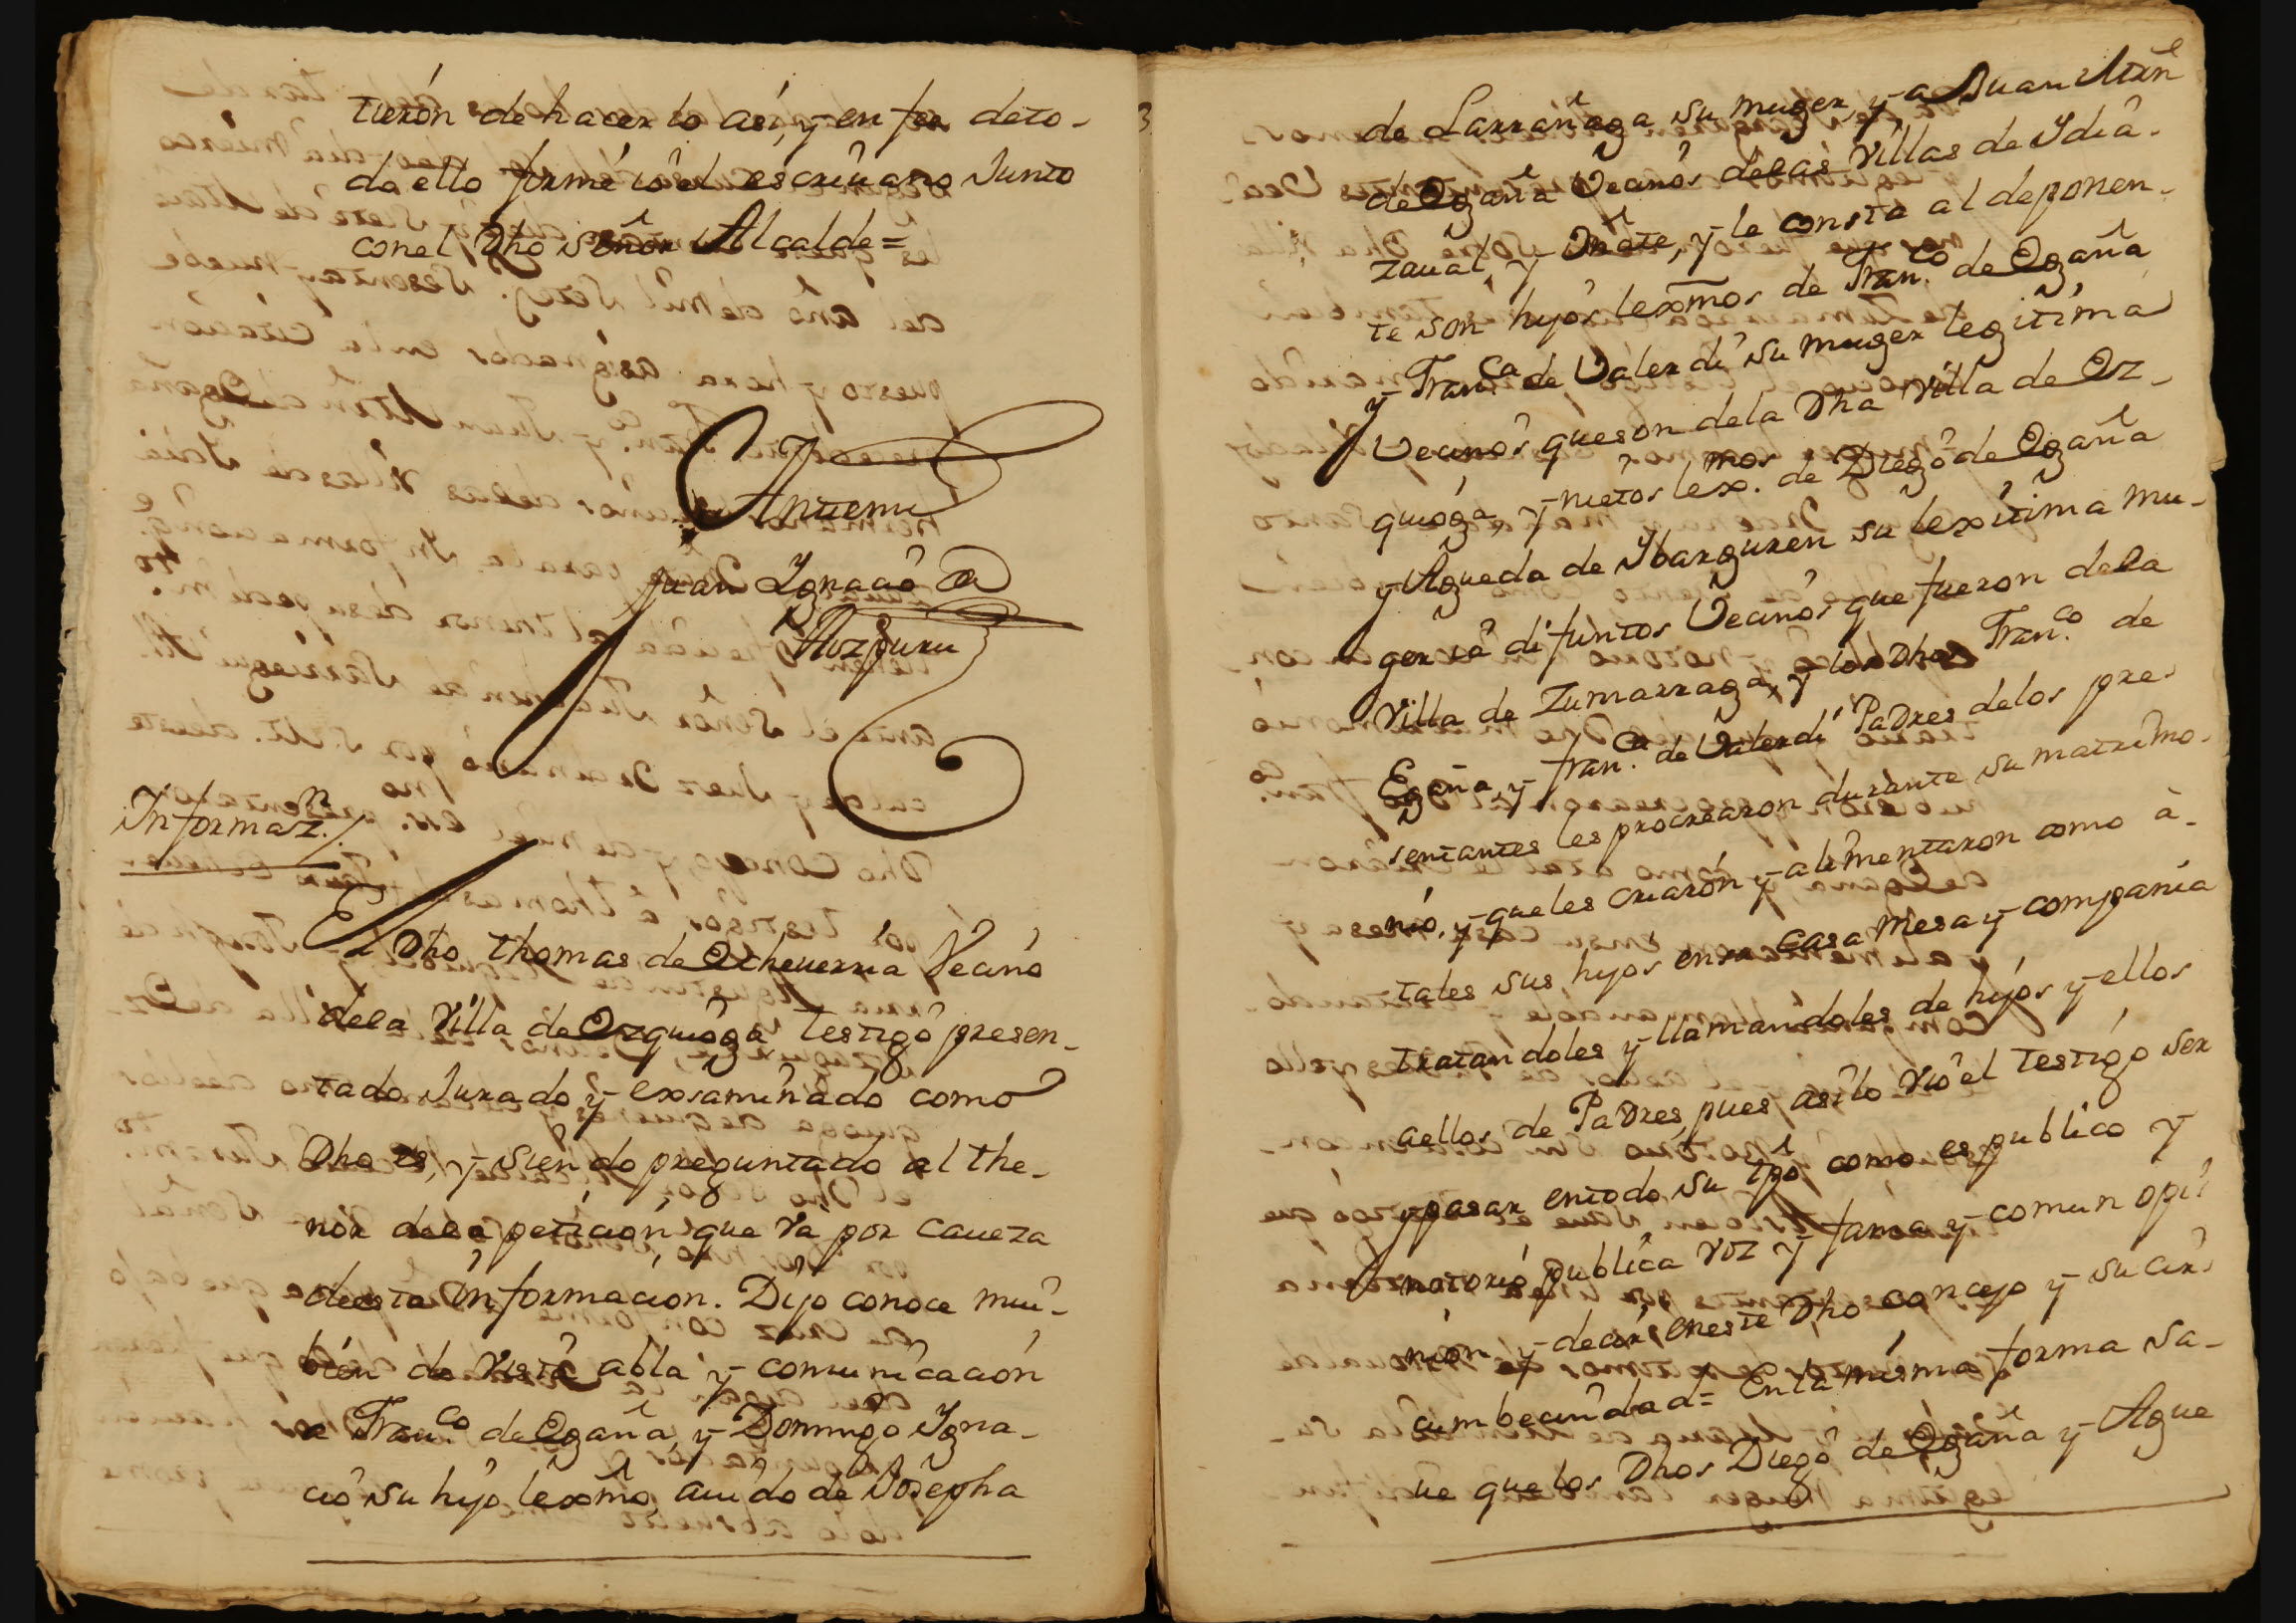 tieron de hacerlo asi, y en fee de to-
do ello firmé io el escriuano Junto
con el Dho señor Alcalde=
Antemi
Juan Ignacio de
Aozpuru
Informaz.n
El Dho thomas de Echeuerria Vecino
dela Villa de Ezquioga testigo presen-
tado Jurado y exsaminado como
Dho es, y siendo preguntado al the-
nor dela peticion que Va por caueza
deesta informacion. Dijo conoce mui-
bien de vista abla y comunicacion
a Fran.co de Egaña, y Domingo Igna-
cio su hijo lexmo, auido de Josepha
3
de Larrañaga su muger, y a Juan Mrn
de Egaña Vecinos delas Villas de Ydia-
zaual, y Oñate, y le consta al deponen-
te son hijos lexmos de Fran.co de Egaña
y Fran.ca de Valerdi su muger legitima
Vecinos que son dela Dha Villa de Ez-
quioga, y nietos lex.mos de Diego de Egaña
y Agueda de Ybarguren su lexitima mu-
ger iâ difuntos Vecinos que fueron dela
Villa de Zumarraga, y los Dhos Fran.co de
Egaña, y fran.ca de Valerdi Padres delos pre-
sentantes les procrearon durante su matrimo-
nio, y que les criaron y alimentaron como à-
tales sus hijos en su casa mesa y compania
tratandoles y llamandoles de hijos y ellos
aellos de Padres, pues asi lo vio el testigo ser
y pasar entodo su tpo como es publico y
notorio publica voz y fama y comun opi-
nion y decir, eneste Dho concejo y su cir-
cumbecindad= Enla misma forma sa-
ue que los Dhos Diego de Egaña y Ague